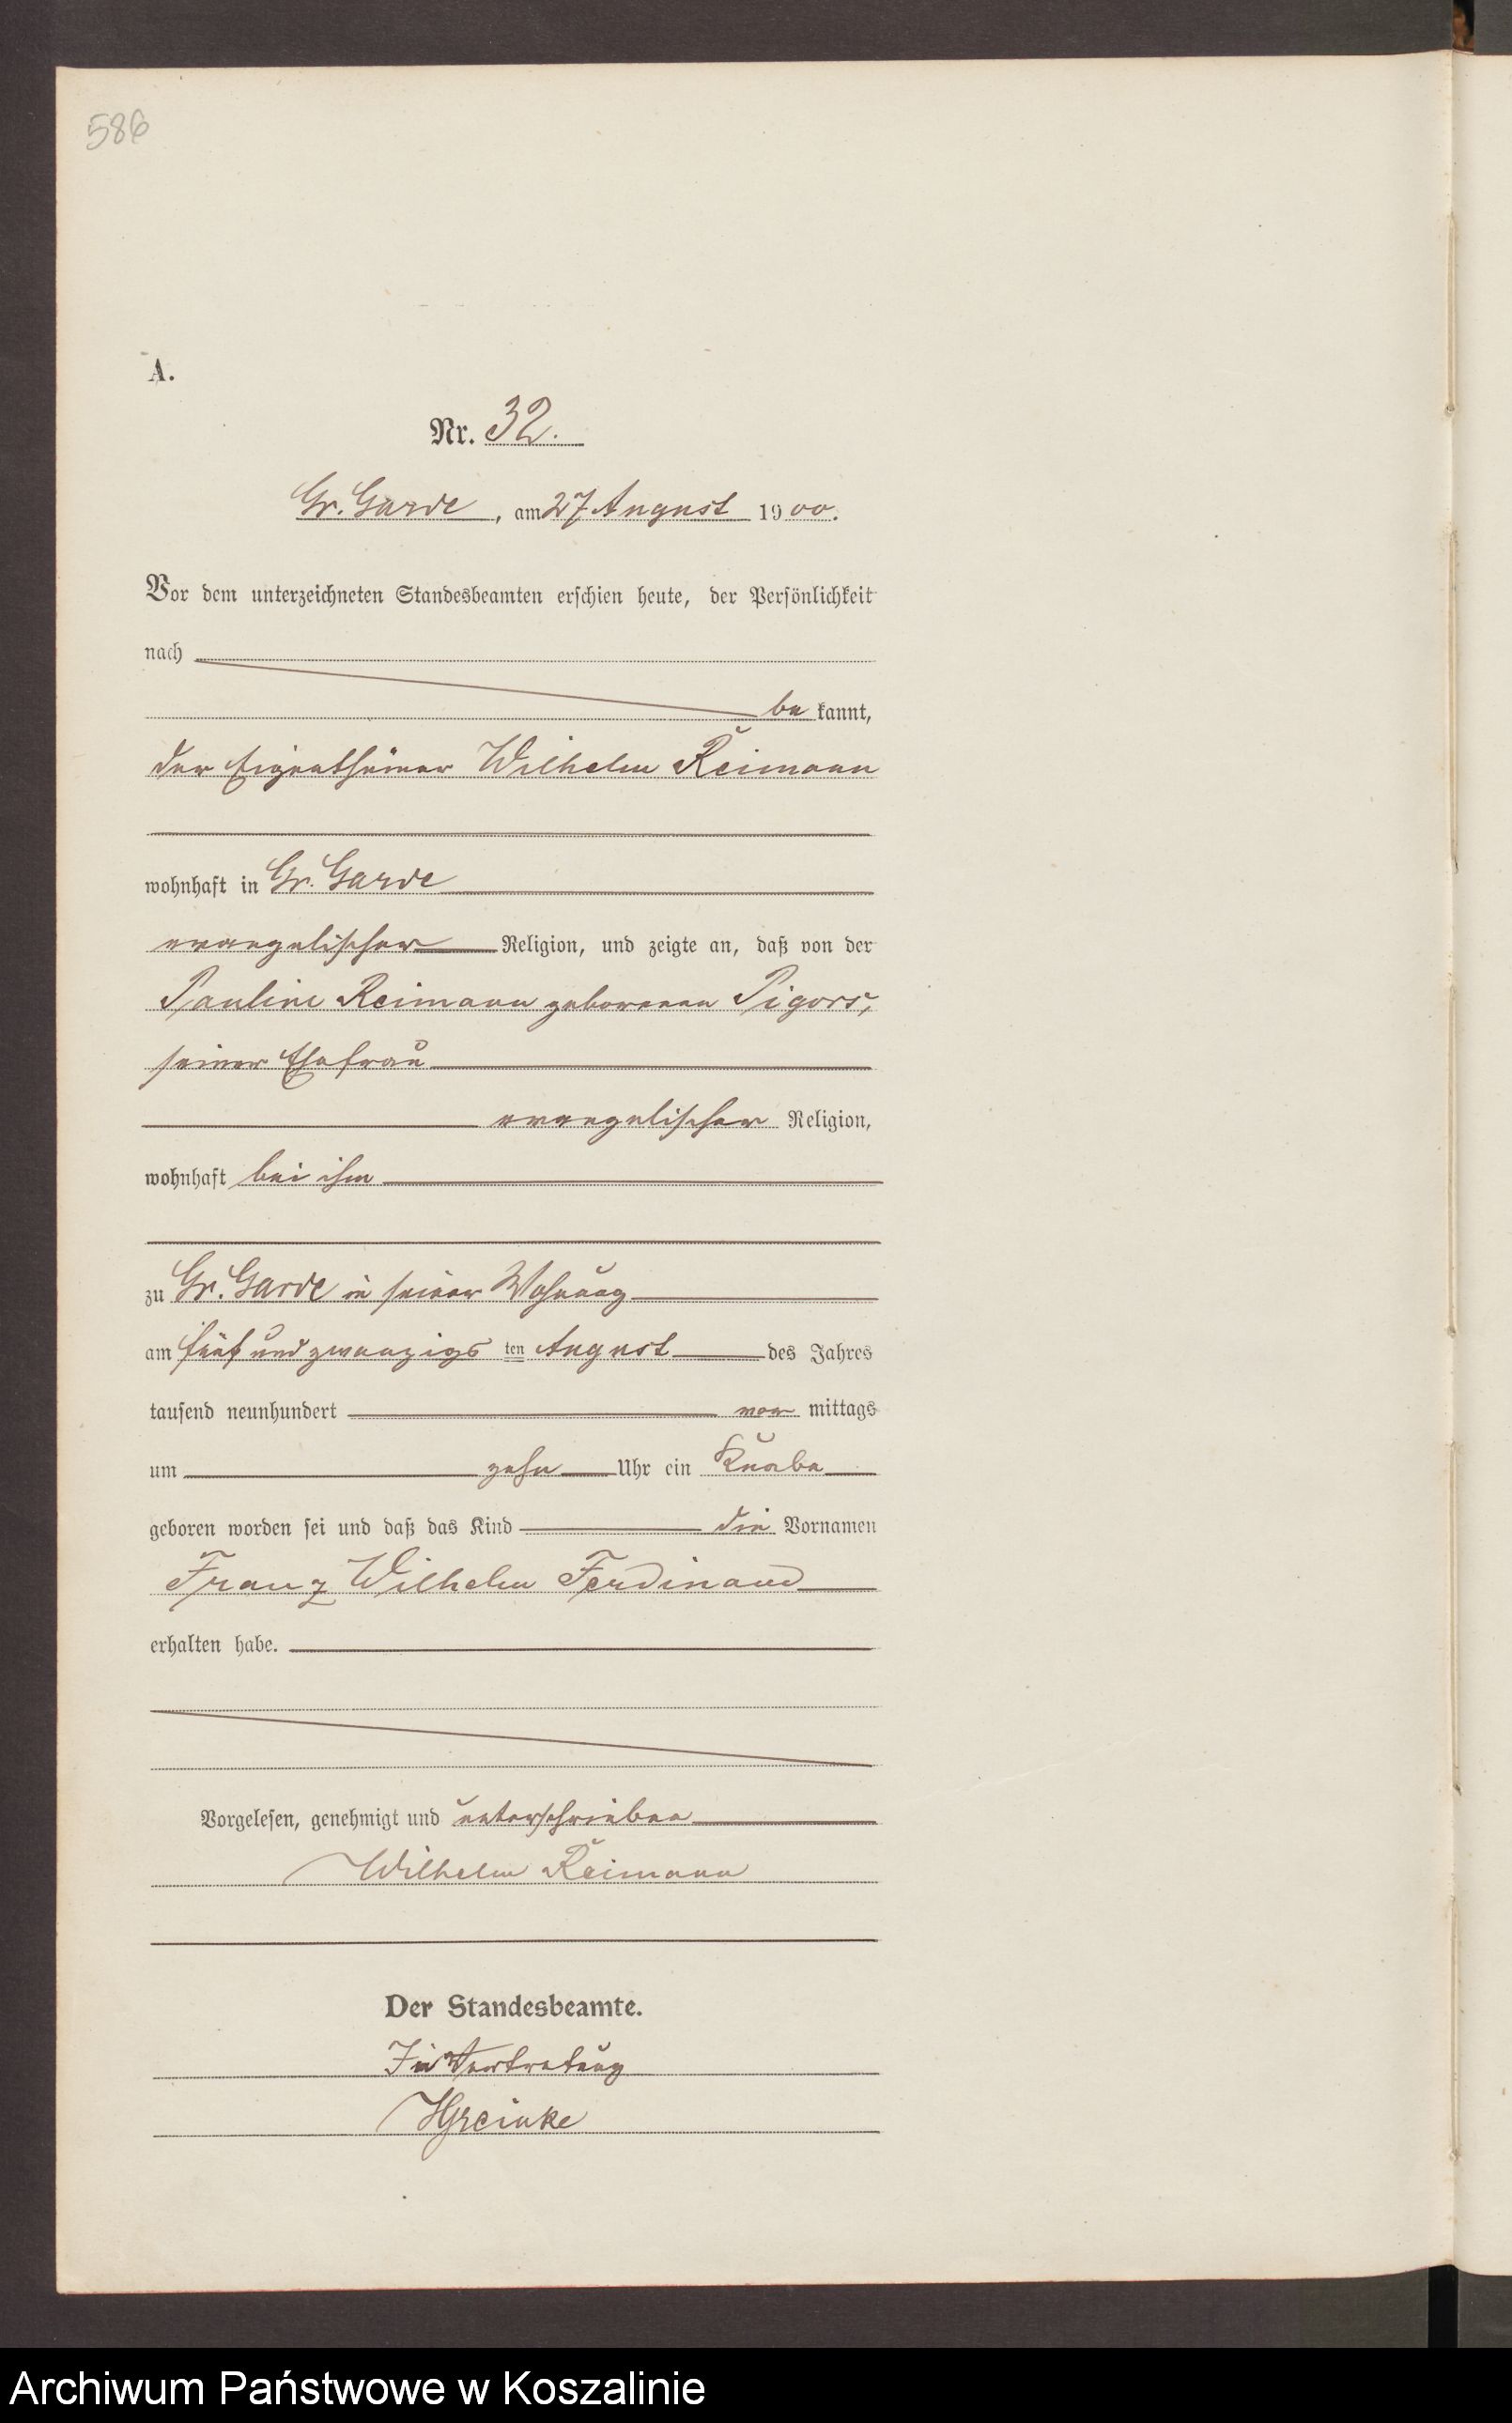 586
A.
Nr. 32.
Gr. Garde, am 27 August 1900.
Vor dem unterzeichneten Standesbeamten erschien heute, der Persönlichkeit
nach
be kannt,
der Eigenthümer Wilhelm Reimann
wohnhaft in Gr. Garde
evangelischer Religion, und zeigte an, daß von der
Pauline Reimann geborenen Pigors,
seiner Ehefrau
evangelischer Religion,
wohnhaft bei ihm
zu Gr. Garde in seiner Wohnung
am fünf und zwanzigs ten August des Jahres
tausend neunhundert vor mittags
um zehn Uhr ein Knabe
geboren worden sei und daß das Kind die Vornamen
Franz Wilhelm Ferdinand
erhalten habe.
Vorgelesen, genehmigt und unterschrieben
Wilhelm Reimann
Der Standesbeamte.
In Vertretung
Archiwum Państwowe w Koszalinie